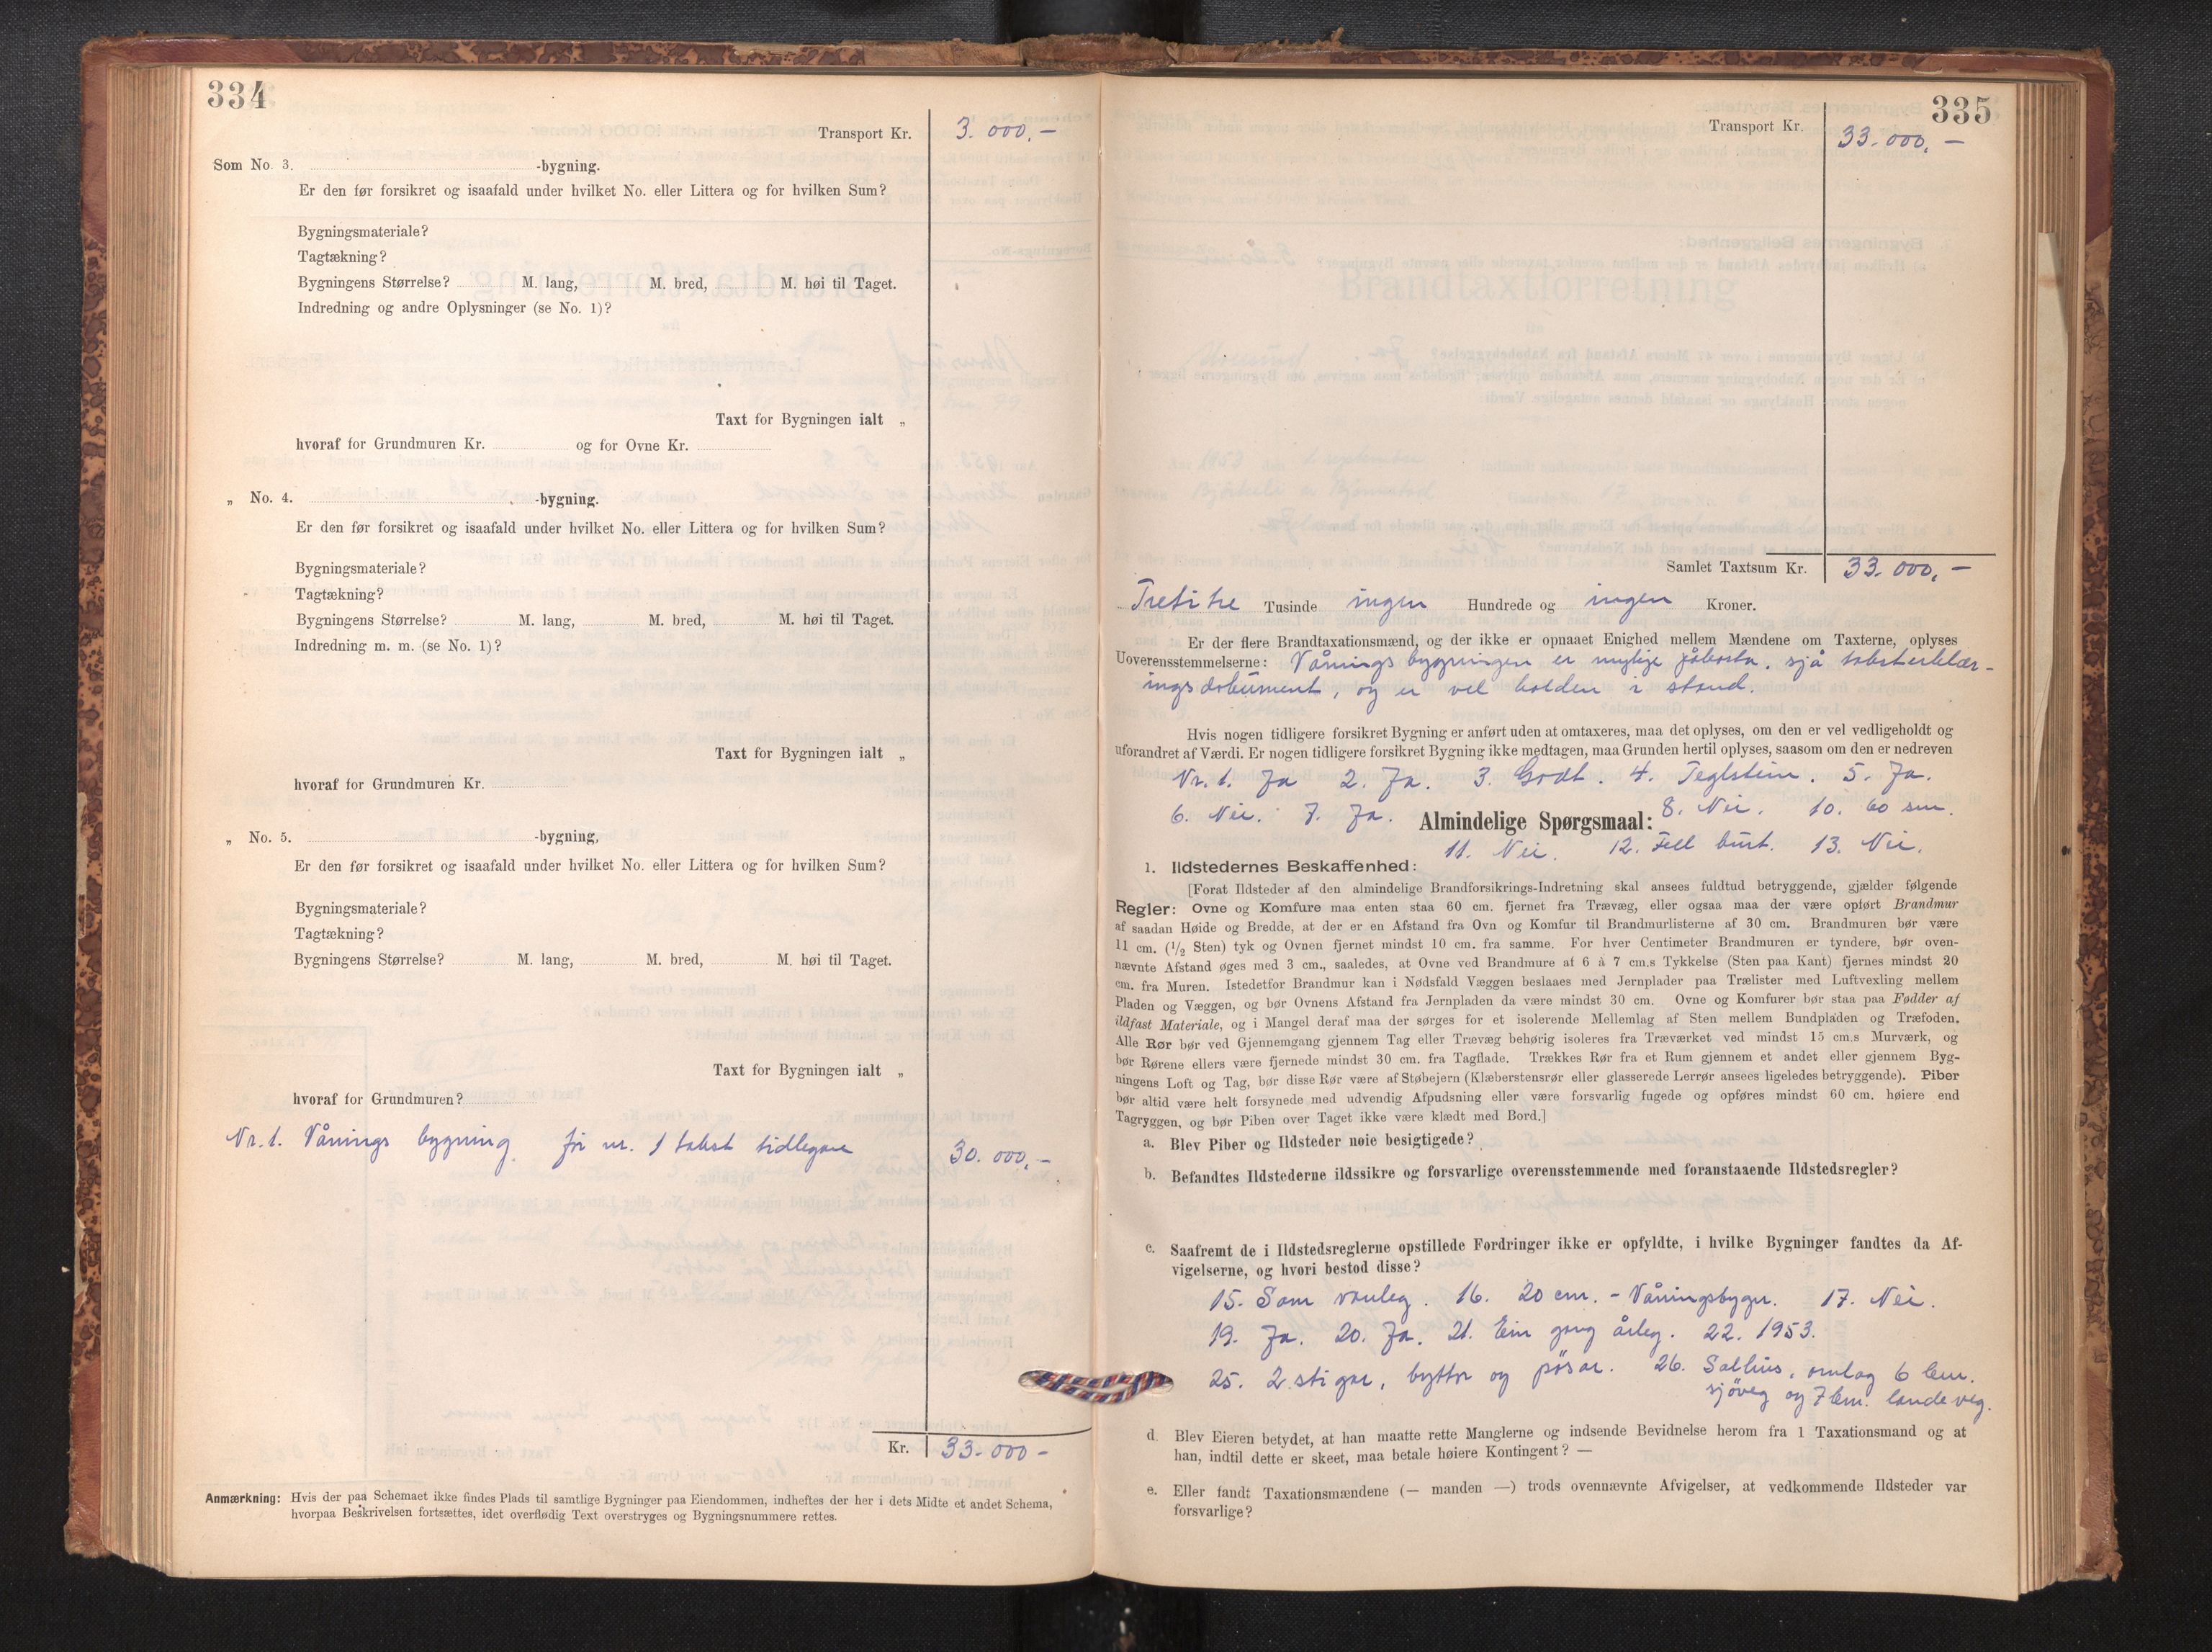 334
Transport Kr. 3.000,-
Som No. 3. -bygning.
Er den før forsikret og isaafald under hvilket No. eller Littera og for hvilken Sum?
Bygningsmateriale?
Tagtækning?
Bygningens Størrelse? M. lang, M. bred, M. høi til Taget.
Indredning og andre Oplysninger (se No. 1)?
Taxt for Bygningen ialt „
hvoraf for Grundmuren Kr. og for Ovne Kr.
„ No. 4. -bygning.
Er den før forsikret og isaafald under hvilket No. eller Littera og for hvilken Sum?
Bygningsmateriale?
Tagtækning?
Bygningens Størrelse? M. lang, M. bred, M. høi til Taget.
Indredning m. m. (se No. 1)?
Taxt for Bygningen ialt „
hvoraf for Grundmuren Kr.
„ No. 5. -bygning,
Er den før forsikret og isaafald under hvilket No. eller Littera og for hvilken Sum?
Bygningsmateriale?
Tagtækning?
Bygningens Størrelse? M. lang, M. bred, M. høi til Taget.
Taxt for Bygningen ialt „
hvoraf for Grundmuren?
Nr. 1. Vånings bygning før nr. 1 takst tidlegare 30.000,-
Kr. 33-000-
Anmærkning: Hvis der paa Schemaet ikke findes Plads til samtlige Bygninger paa Eiendommen, indheftes der her i dets Midte et andet Schema,
hvorpaa Beskrivelsen fortsættes, idet overflødig Text overstryges og Bygningsnummere rettes.
335
Transport Kr. 33-000,-
Samlet Taxtsum Kr. 33.000,-
Tretitre Tusinde ingen Hundrede og ingen Kroner.
Er der flere Brandtaxationsmænd, og der ikke er opnaaet Enighed mellem Mændene om Taxterne, oplyses
Uoverensstemmelserne: Vånings bygningen er mylige påkosta, sjå taksterklær-
ingsdokument, og er vel halden i stand.
Hvis nogen tidligere forsikret Bygning er anført uden at omtaxeres, maa det oplyses, om den er vel vedligeholdt og
uforandret af Værdi. Er nogen tidligere forsikret Bygning ikke medtagen, maa Grunden hertil oplyses, saasom om den er nedreven
Nr. 1. Ja 2. Ja. 3. Godt. 4. Teglstein. 5. Ja.
6. Nei. 7. Ja. Almindelige Spørgsmaal: 8. Nei. 10. 60 sm.
11. Nei. 12. Fell burt. 13. Nei.
1. Ildstedernes Beskaffenhed:
[Forat Ildsteder af den almindelige Brandforsikrings-Indretning skal ansees fuldtud betryggende, gjælder følgende
Regler: Ovne og Komfure maa enten staa 60 cm. fjernet fra Trævæg, eller ogsaa maa der være opført Brandmur
af saadan Høide og Bredde, at der er en Afstand fra Ovn og Komfur til Brandmurlisterne af 30 cm. Brandmuren bør være
11 cm. (1/2 Sten) tyk og Ovnen fjernet mindst 10 cm. fra samme. For hver Centimeter Brandmuren er tyndere, bør oven-
nævnte Afstand øges med 3 cm., saaledes, at Ovne ved Brandmure af 6 à 7 cm.s Tykkelse (Sten paa Kant) fjernes mindst 20
cm. fra Muren. Istedetfor Brandmur kan i Nødsfald Væggen beslaaes med Jernplader paa Trælister med Luftvexling mellem
Pladen og Væggen, og bør Ovnens Afstand fra Jernpladen da være mindst 30 cm. Ovne og Komfurer bør staa paa Fødder af
ildfast Materiale, og i Mangel deraf maa der sørges for et isolerende Mellemlag af Sten mellem Bundpladen og Træfoden.
Alle Rør bør ved Gjennemgang gjennem Tag eller Trævæg behørig isoleres fra Træværket ved mindst 15 cm.s Murværk, og
bør Rørene ellers være fjernede mindst 30 cm. fra Tagflade. Trækkes Rør fra et Rum gjennem et andet eller gjennem Byg-
ningens Loft og Tag, bør disse Rør være af Støbejern (Klæberstensrør eller glasserede Lerrør ansees ligeledes betryggende). Piber
bør altid være helt forsynede med udvendig Afpudsning eller være forsvarlig fugede og opføres mindst 60 cm. høiere end
Tagryggen, og bør Piben over Taget ikke være klædt med Bord.]
a. Blev Piber og Ildsteder nøie besigtigede?
b. Befandtes Ildstederne ildssikre og forsvarlige overensstemmende med foranstaaende Ildstedsregler?
c. Saafremt de i Ildstedsreglerne opstillede Fordringer ikke er opfyldte, i hvilke Bygninger fandtes da Af-
vigelserne, og hvori bestod disse?
15. Som vanleg. 16. 20 cm. - Våningsbygn. 17. Nei.
19. Ja. 20. Ja. 21. Ein gong årleg. 22. 1953.
25. 2 stigar, byttor og pøsar. 26. Salhus, omlag 6 km.
sjøveg og 7 km. landeveg.
d. Blev Eieren betydet, at han maatte rette Manglerne og indsende Bevidnelse herom fra 1 Taxationsmand og at
han, indtil dette er skeet, maa betale høiere Kontingent? —
e. Eller fandt Taxationsmændene (— manden —) trods ovennævnte Afvigelser, at vedkommende Ildsteder var
forsvarlige?